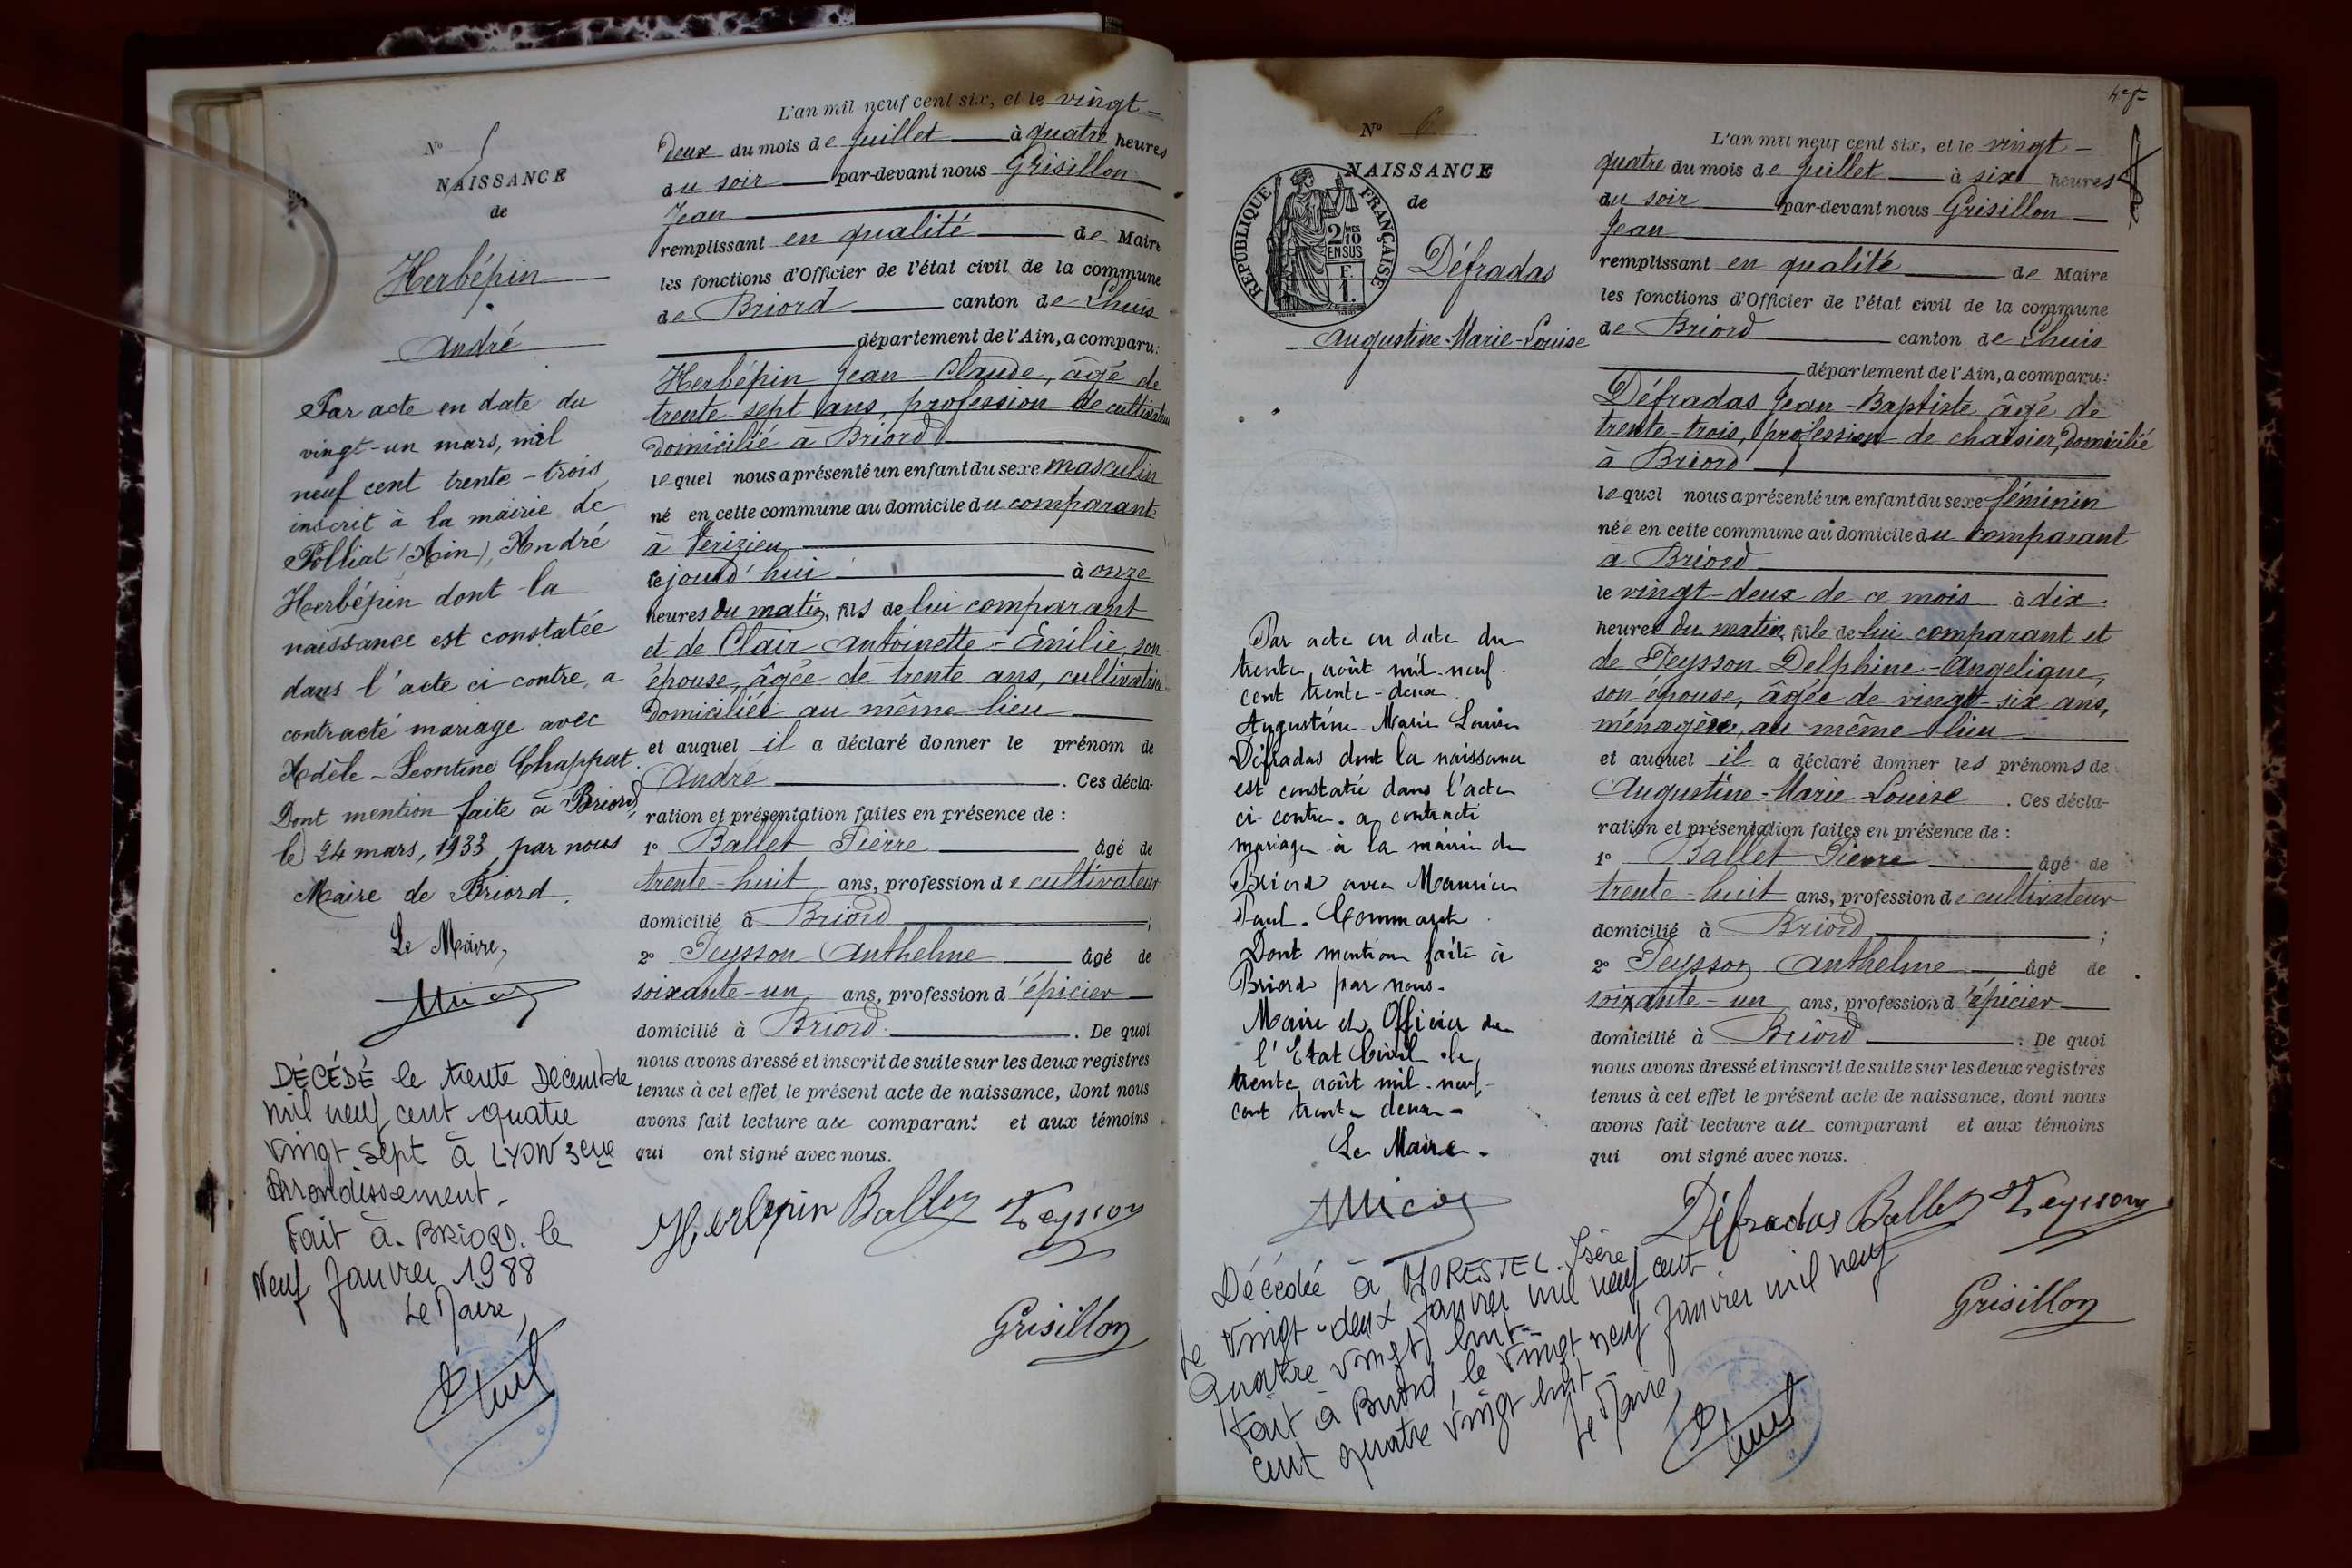 N° 5
NAISSANCE
de
Herbépin
André
Par acte en date du
vingt-un mars, mil
neuf cent trente-trois
inscrit à la mairie de
Polliat (Ain), André
Herbépin dont la
naissance est constatée
dans l'acte ci-contre, a
contracté mariage avec
Adèle-Léontine Chappat.
Dont mention faite à Briord,
le 24 mars, 1933, par nous
Maire de Briord.
Le Maire,
DÉCÉDÉ le trente Décembre
mil neuf cent quatre
vingt sept à LYON 3eme
Arrondissement.
Fait à BRIORD. le
Neuf Janvier 1988
Le Maire,
L'an mil neuf cent six, et le vingt-
deux du mois de juillet à quatre heures
du soir par-devant nous Grisillon
Jean
remplissant en qualité de Maire
les fonctions d'Officier de l'état civil de la commune
de Briord canton de Lhuis
département de l'Ain, a comparu:
Herbépin Jean-Claude, âgé de
trente-sept ans, profession de cultivateur
domicilié à Briord
lequel nous a présenté un enfant du sexe masculin
né en cette commune au domicile du comparant
à Vérizieu
cejourd'hui à onze
heures du matin, fils de lui comparant
et de Clair Antoinette-Emilie, son
épouse, âgée de trente ans, cultivatrice
domiciliée au même lieu
et auquel il a déclaré donner le prénom de
André . Ces décla-
ration et présentation faites en présence de :
1° Ballet Pierre âgé de
trente-huit ans, profession de cultivateur
domicilié à Briord ;
2° Teysson Anthelme âgé de
soixante-un ans, profession d'épicier
domicilié à Briord . De quoi
nous avons dressé et inscrit de suite sur les deux registres
tenus à cet effet le présent acte de naissance, dont nous
avons fait lecture au comparant et aux témoins
qui ont signé avec nous.
Herbépin Ballet Teysson
Grisillon
N° 6
NAISSANCE
de
REPUBLIQUE FRANÇAISE
2/10 MES
EN SUS
F.
1.
Défradas
Augustine-Marie-Louise
Par acte en date du
trente août mil-neuf-
cent trente-deux
Augustine Marie Louise
Défradas dont la naissance
est constatée dans l'acte
ci-contre. a contracté
mariage à la mairie de
Briord avec Maurice
Paul.
Dont mention faite à
Briord par nous.
Maire et Officier de
l'Etat Civil le
trente août mil-neuf-
cent trente deux-
Le Maire.
Décédée à MORESTEL. Isère
Le vingt-deux Janvier mil neuf cent
quatre vingt huit-
Fait à Briord, le vingt neuf Janvier mil neuf
cent quatre vingt huit-
Le Maire,
L'an mil neuf cent six, et le vingt-
quatre du mois de juillet à six heures
du soir par-devant nous Grisillon
Jean
remplissant en qualité de Maire
les fonctions d'Officier de l'état civil de la commune
de Briord canton de Lhuis
département de l'Ain, a comparu:
Défradas Jean-Baptiste âgé de
trente-trois, profession de chaisier, domicilié
à Briord
lequel nous a présenté un enfant du sexe féminin
née en cette commune au domicile du comparant
à Briord
le vingt-deux de ce mois à dix
heures du matin, fille de lui comparant et
de Teysson Delphine-Angelique,
son épouse, âgée de vingt-six ans,
ménagère, au même lieu
et auquel il a déclaré donner les prénoms de
Augustine-Marie-Louise . Ces décla-
ration et présentation faites en présence de :
1° Ballet Pierre âgé de
trente-huit ans, profession de cultivateur
domicilié à Briord ;
2° Teysson Anthelme âgé de
soixante-un ans, profession d'épicier
domicilié à Briord . De quoi
nous avons dressé et inscrit de suite sur les deux registres
tenus à cet effet le présent acte de naissance, dont nous
avons fait lecture au comparant et aux témoins
qui ont signé avec nous.
Défradas Ballet Teysson
Grisillon